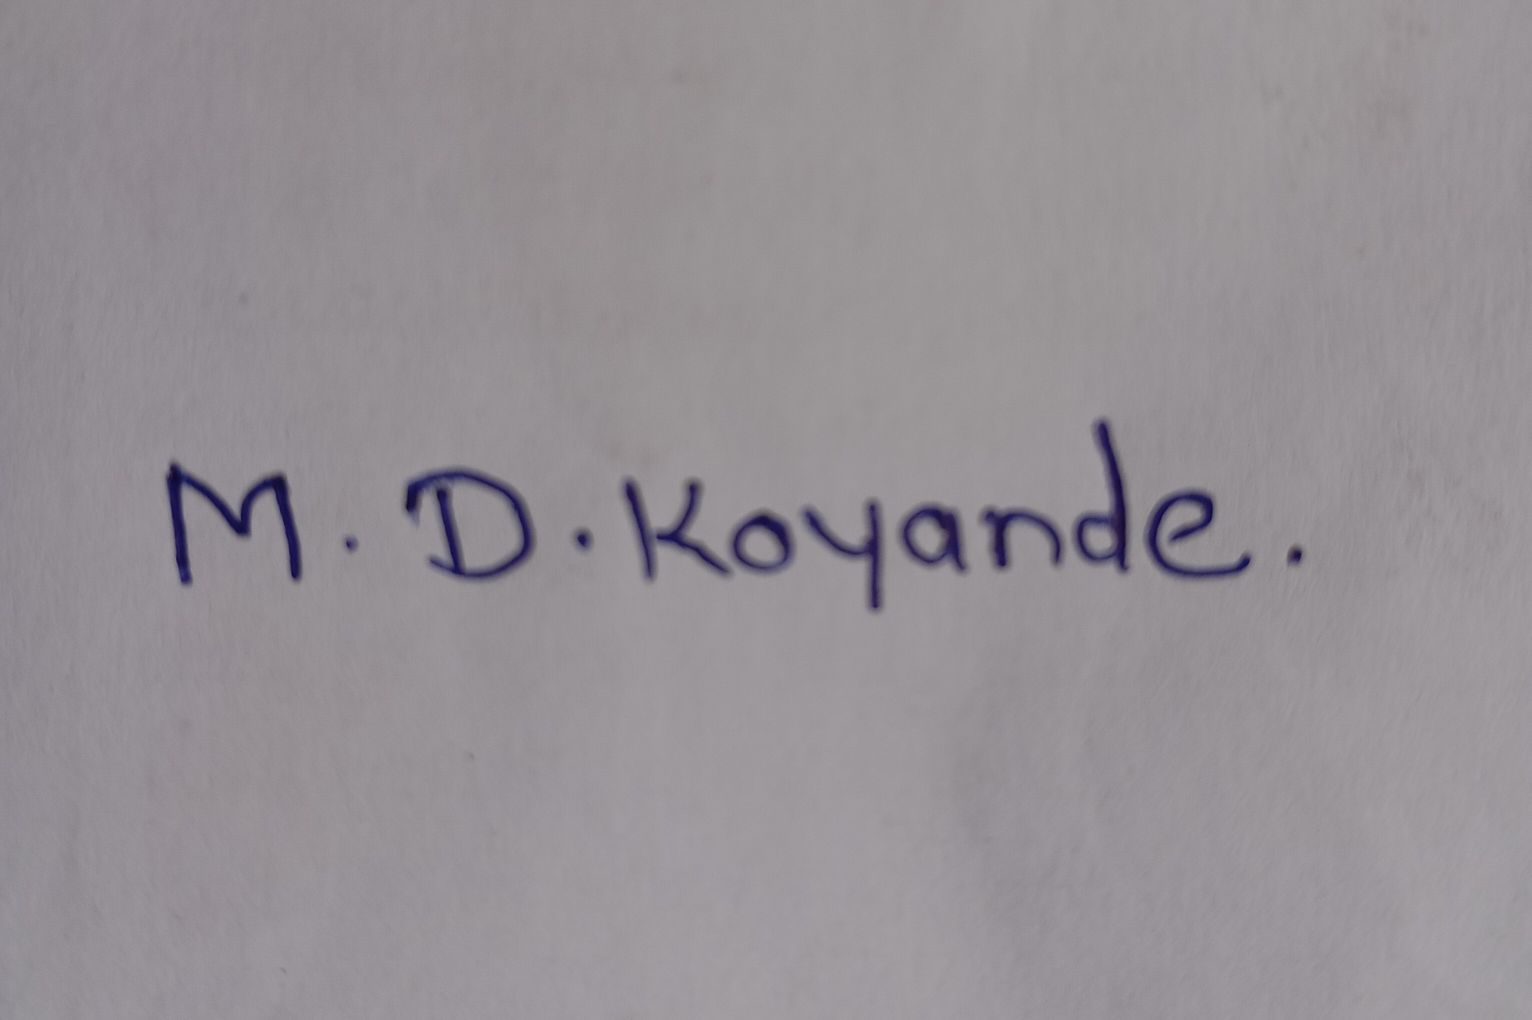 M. D. Koyande.